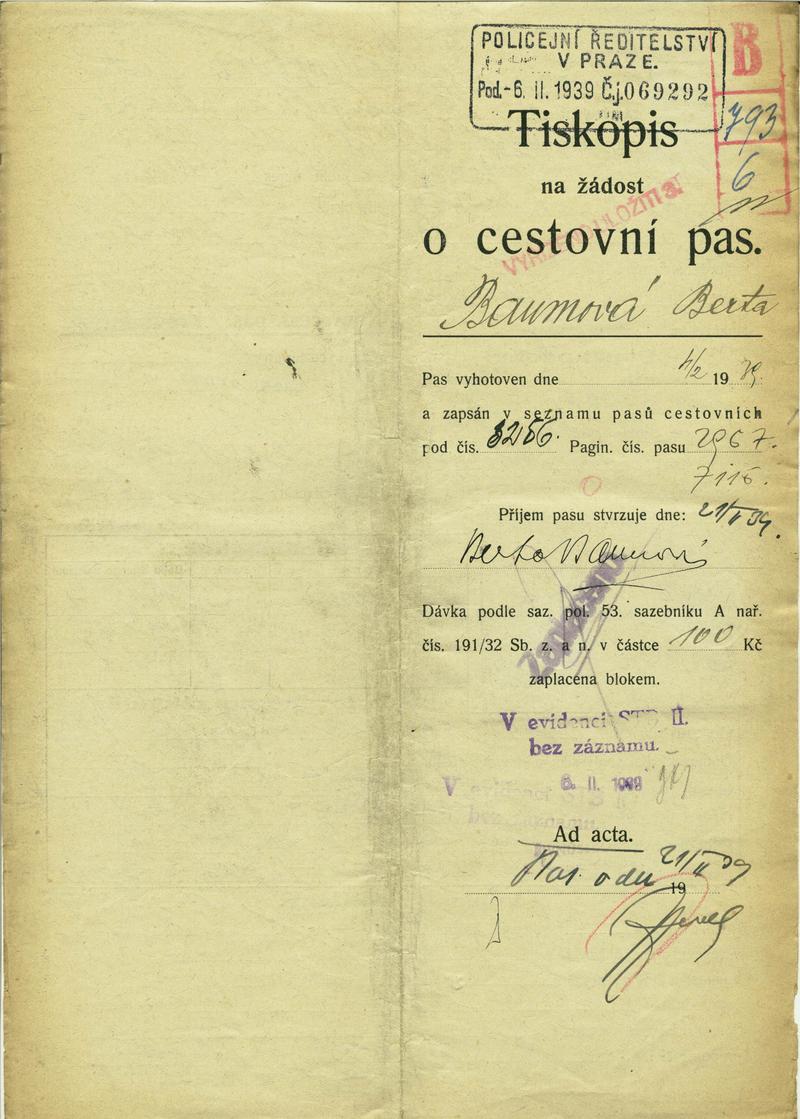 POLICEJNÍ ŘEDITELSTVÍ
V PRAZE.
Pod.-6. II. 1939 Č.j. 069292
B
793
6
Tiskopis
na žádost
o cestovní pas.
Baumová Berta
Pas vyhotoven dne 19 39.
a zapsán v seznamu pasů cestovních
pod čís. 5256. Pagin. čís. pasu 2967.
7115.
Příjem pasu stvrzuje dne: 21/II 39.
Berta Baumová
Dávka podle saz. pol. 53. sazebníku A nař.
čís. 191/32 Sb. z. a n. v částce 100 Kč
zaplacena blokem.
V evidenci II.
bez záznamu.
6. II. 1939
V evidenci
bez záznamu
Ad acta.
21/II 39
19